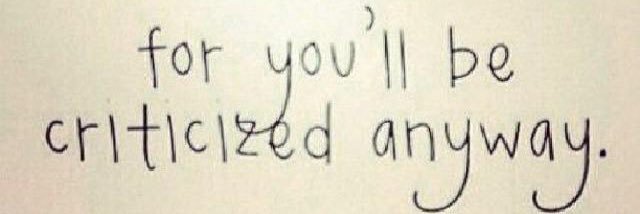 for you'll be
criticized anyway.